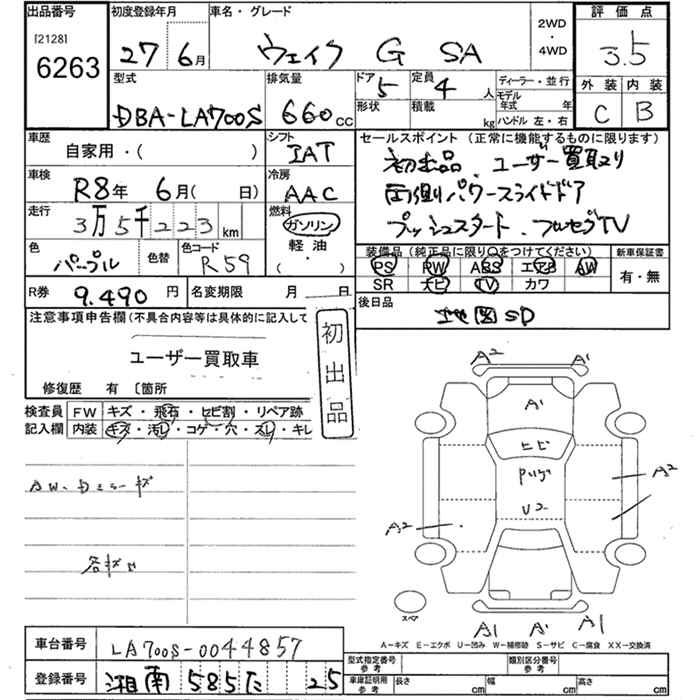 出品番号
[2128]
6263
初度登録年月
27年6月
車名・グレード
ウェイク G SA
2WD
・
4WD
評価点
3.5
外装 内装
C B
型式
DBA-LA700S
排気量
660cc
ドア 5
形状
定員 4人
積載 kg
ディーラー・並行
モデル年式 年
ハンドル 左・右
車歴
自家用・( )
シフト
IAT
セールスポイント (正常に機能するものに限ります)
初出品 ユーザー買取り
両側パワースライドドア
プッシュスタート.フルセグTV
車検
R8年 6月( 日)
冷房
AAC
走行
3万5千223km
燃料
ガソリン
軽油
( ・ )
色
パープル
色替
色コード
R59
装備品 (純正品に限り○をつけてください)
PS PW ABS エアB AW
SR ナビ TV カワ
新車保証書
有・無
R券 9.490円
名変期限 月 日
後日品
地図SD
注意事項申告欄(不具合内容等は具体的に記入して
ユーザー買取車
初出品
修復歴 有 〔箇所
検査員記入欄
FW キズ・飛石・ヒビ割・リペア跡
内装 キズ・汚レ・コゲ・穴・スレ・キレ
AW、Dミラーキズ
A2 A1
A1
ヒビ
A2
U2
A2
スペア
A1 A1 A1
A-キズ E-エクボ U-凹み W-補修跡 S-サビ C-腐食 XX-交換済
車台番号 LA700S-0044857
登録番号 湘南 585た 25
型式指定番号 参考
類別区分番号 参考
車庫証明用 参考
長さ cm 幅 cm 高さ cm